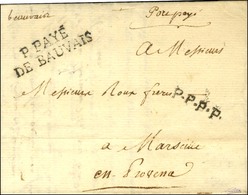 beauvais Port payé
P. PAYÉ
DE BAUVAIS
A Messieurs
Messieurs Roux freres
P.P.P.P.
a Marseille
en Provence